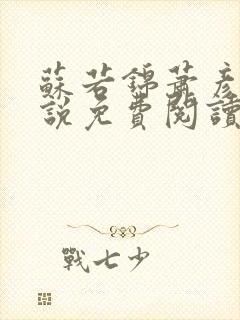 蘇若錦蕭彥
說免費閱讀
戰七少